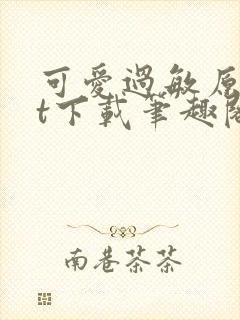 可愛過敏原
t下載筆趣閣
南巷茶茶